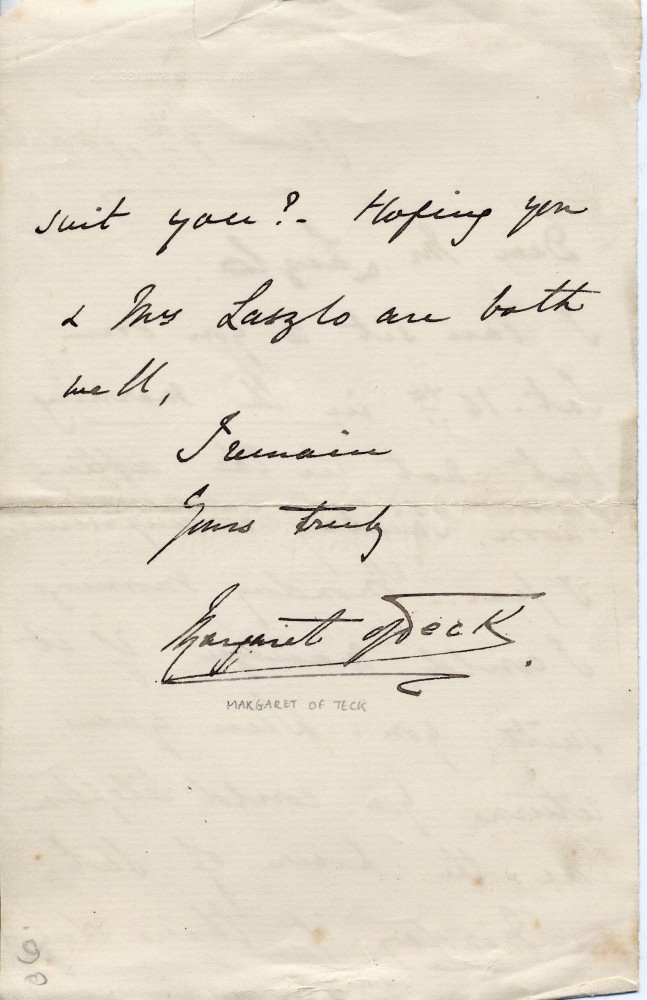 suit you?- Hoping you
& Mrs Laszlo are both
well,
I remain
Yours truly
Margaret of Teck.
MARGARET OF TECK